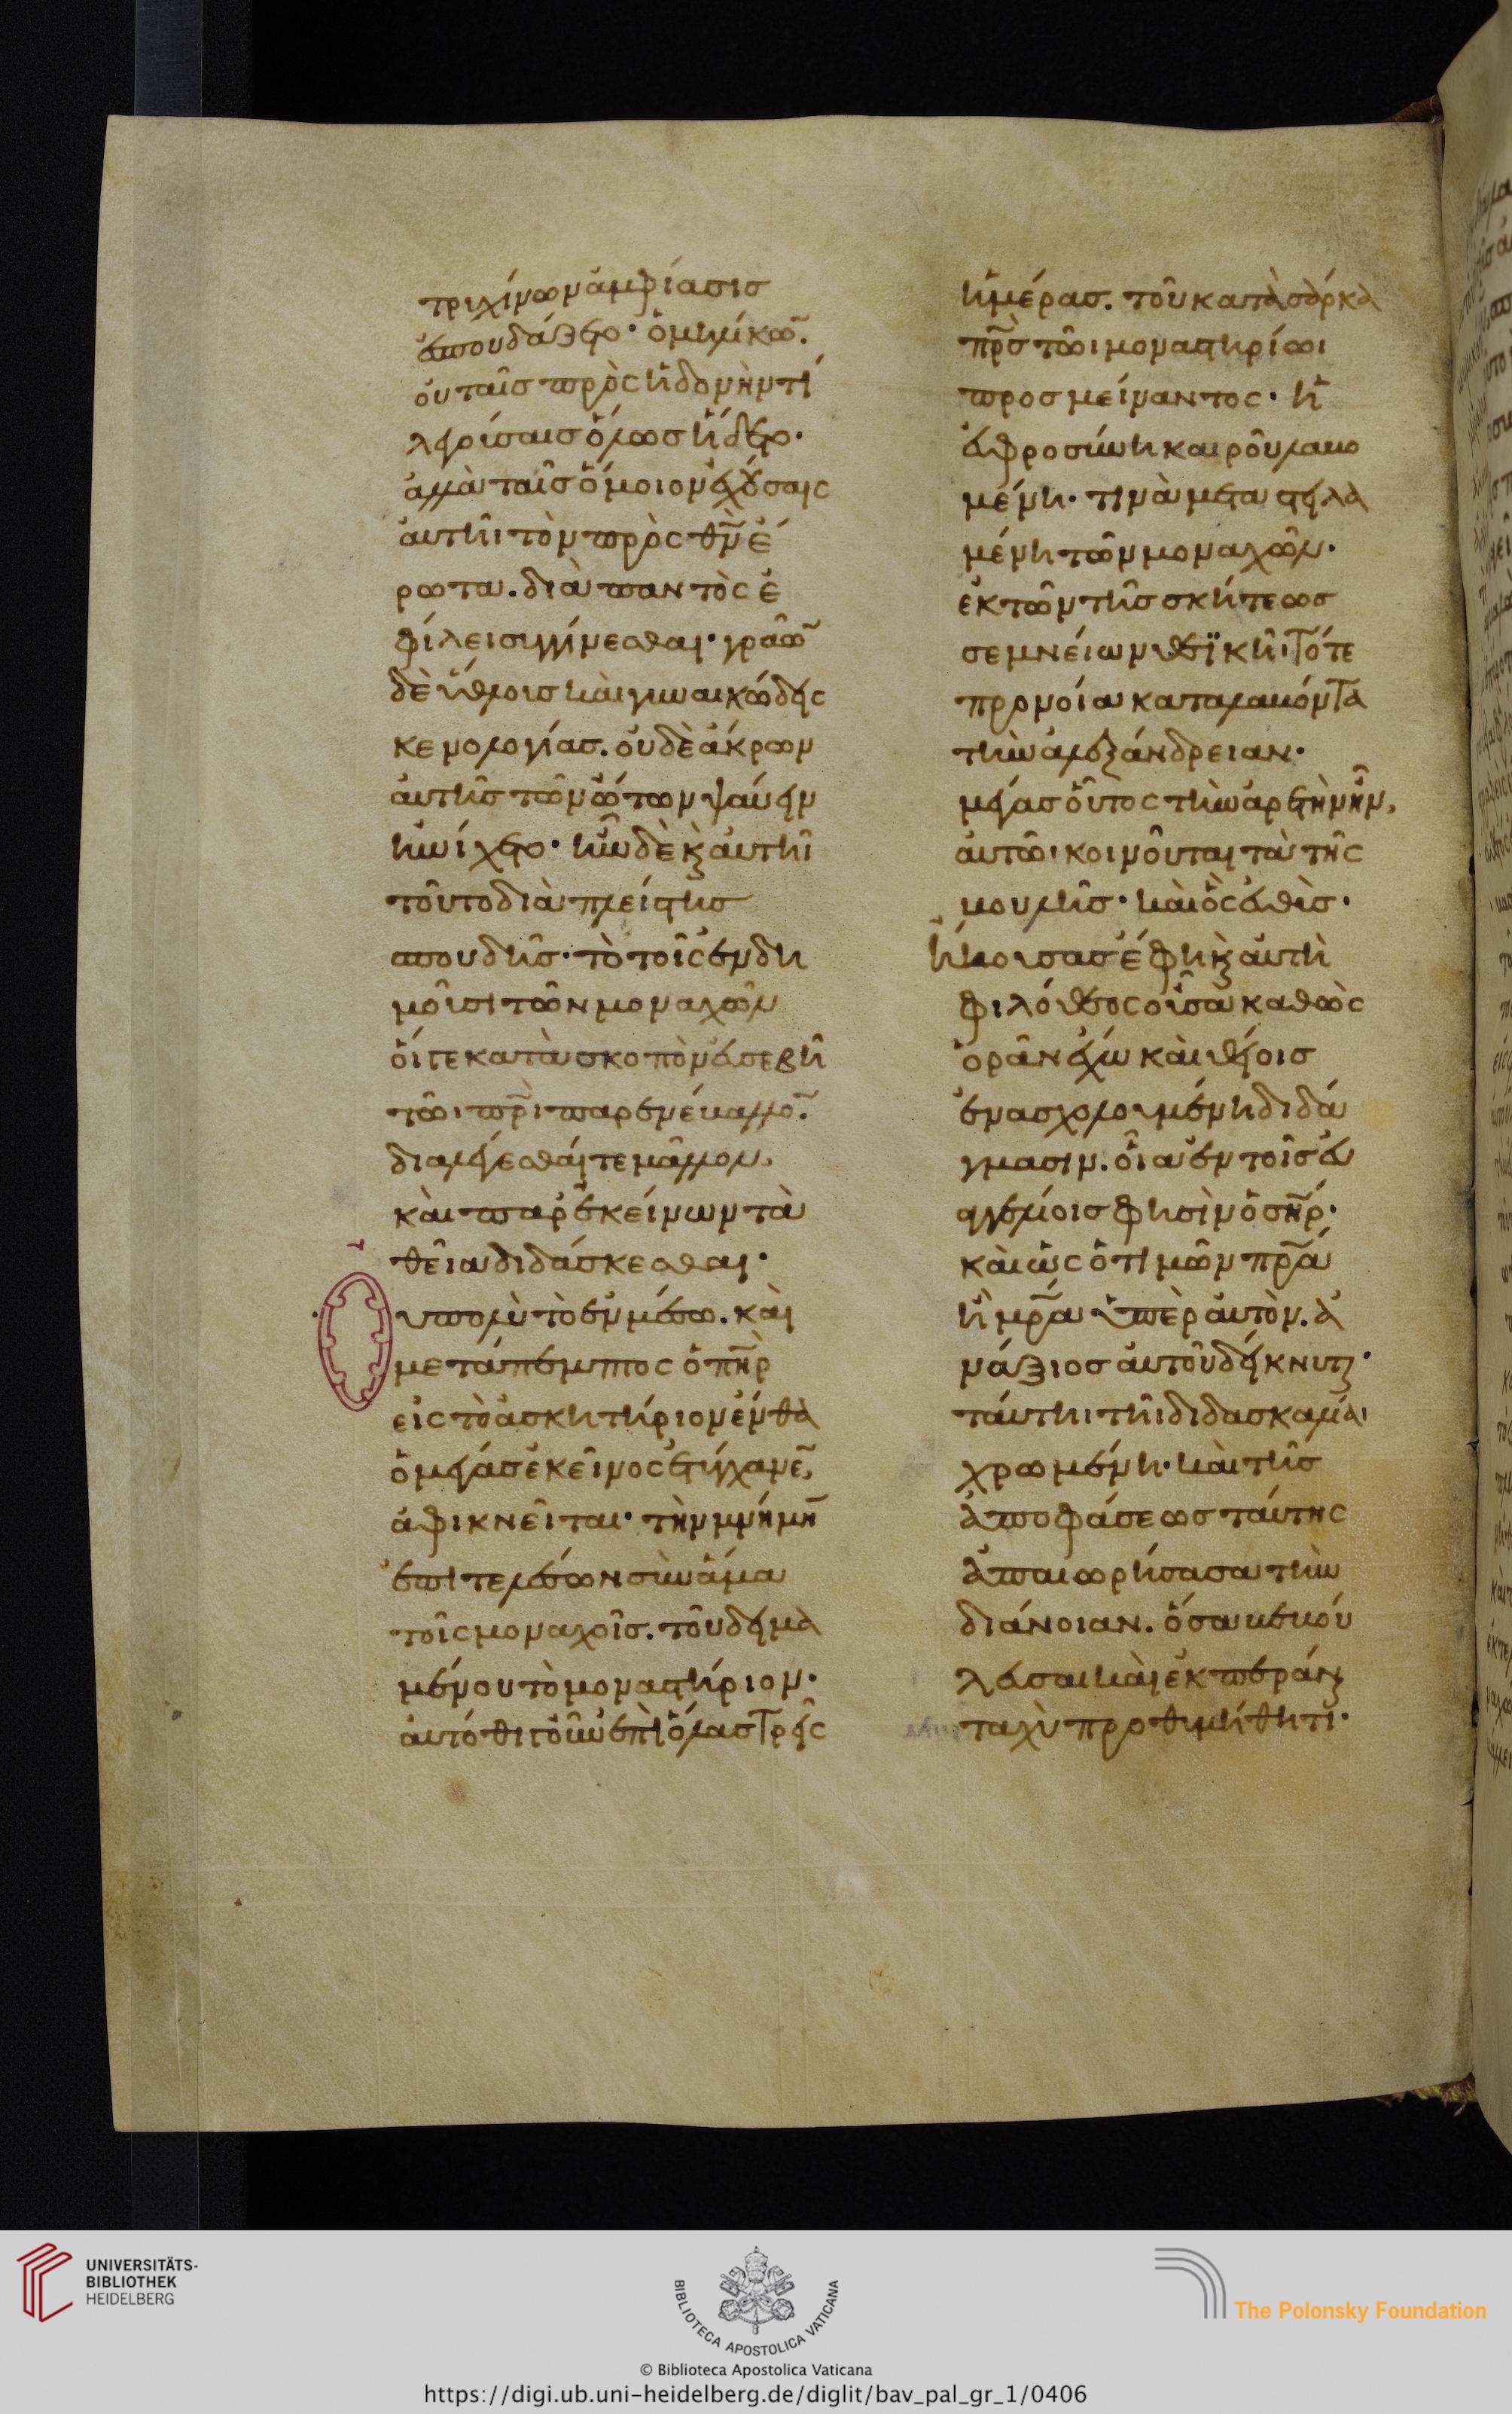 τριχίνων ἀμφίασις
ἐσπουδάζετο· ὁμηλίκω̅.
οὐ ταῖς πρὸς ἡδονὴν τί
λλούσαις ὅλως ἥδετο·
ἀλλὰ ταῖς ὅμοιον ἐχούσαις
αὐτῆι τὸν πρὸς θ̅ν̅ ἔ
ρωτα. διὰ παντὸς ἐ
φίλει συγγίνεσθαι· γραῶ̅
δὲ ὕθλοις καὶ γυναικώδης
κενολογίας. οὐδὲ ἄκρων
αὐτῆς τῶν ὤτων ψαύειν
ἠνείχετο· ἦν δὲ κ αὐτῆι
τοῦτο διὰ πλείστης
σπουδῆς· τὸ τοῖς ἐνδη
μοῦσι τῶν μοναχῶν
οἵ τε κατὰ σκοπὸν εὐσεβῆ
τῶι π̅ρ̅ι̅ παρενέβαλλο̅.
διαλέγεσθαί τε μᾶλλον,
καὶ παρ' ἐκείνων τὰ
θεῖα διδάσκεσθαι·
υπολὺ τὸ ἐν μέσω. καὶ
μετάπεμπτος ὁ π̅η̅ρ̅
εἰς τὸ ἀσκητήριον ἔνθα
ὁ μέγας ἐκεῖνος ἐτύγχανε̅,
ἀφικνεῖται· τὴν μνήμη̅
ἐπιτελέσων σὺν ἅμα
τοῖς μοναχοῖς. τοῦ δειμα
μένου τὸ μοναστήριον·
αὐτόθι τοίνυν ἐπὶ ὅλας τρεῖς
ἡμέρας. τοῦ κατὰ σάρκα
π̅ρ̅ς̅ τῶι μοναστηρίωι
προσμείναντος· ἡ
εὐφροσύνη καιροῦ λαβο
μένη· τινὰ μεταστειλα
μένη τῶν μοναχῶν·
ἐκ τῶν τῆς σκήτεως
σεμνείων θεϊκῆι τότε
προνοία καταλαβόντα
τὴν ἀλεξάνδρειαν·
μέγας οὗτος τὴν ἀρετὴν ἦν,
αὐτῶι κοινοῦται τὰ τῆς
βουλῆς· καὶ ὃς εὐθὺς·
ἤκουσας ἔφη κ αὐτὴ
φιλόθεος οὖσα καθὼς
ὁρᾶν ἔχω καὶ θείοις
ἐνασχολουμένη διδά
γμασιν. οἷα ἐν τοῖς εὐ
αγγελίοις φησὶν ὁ σ̅η̅ρ̅·
καὶ ὡς ὁ τιμῶν π̅ρ̅α̅
ἢ μ̅ρ̅α̅ ὑπὲρ αὐτὸν. ἀ
νάξιος αὐτοῦ δείκνυται·
ταύτηι τῆι διδασκαλίαι
χρωμένη· καὶ τῆς
ἀποφάσεως ταύτης
ἀπαιωρήσασα τὴν
διάνοιαν. ὅσα βεβού
λευσαι καὶ ἐκπεράναι
ταχὺ προθυμήθητι·
UNIVERSITÄTS-
BIBLIOTHEK
HEIDELBERG
BIBLIOTECA APOSTOLICA VATICANA
The Polonsky Foundation
© Biblioteca Apostolica Vaticana
https://digi.ub.uni-heidelberg.de/diglit/bav_pal_gr_1/0406